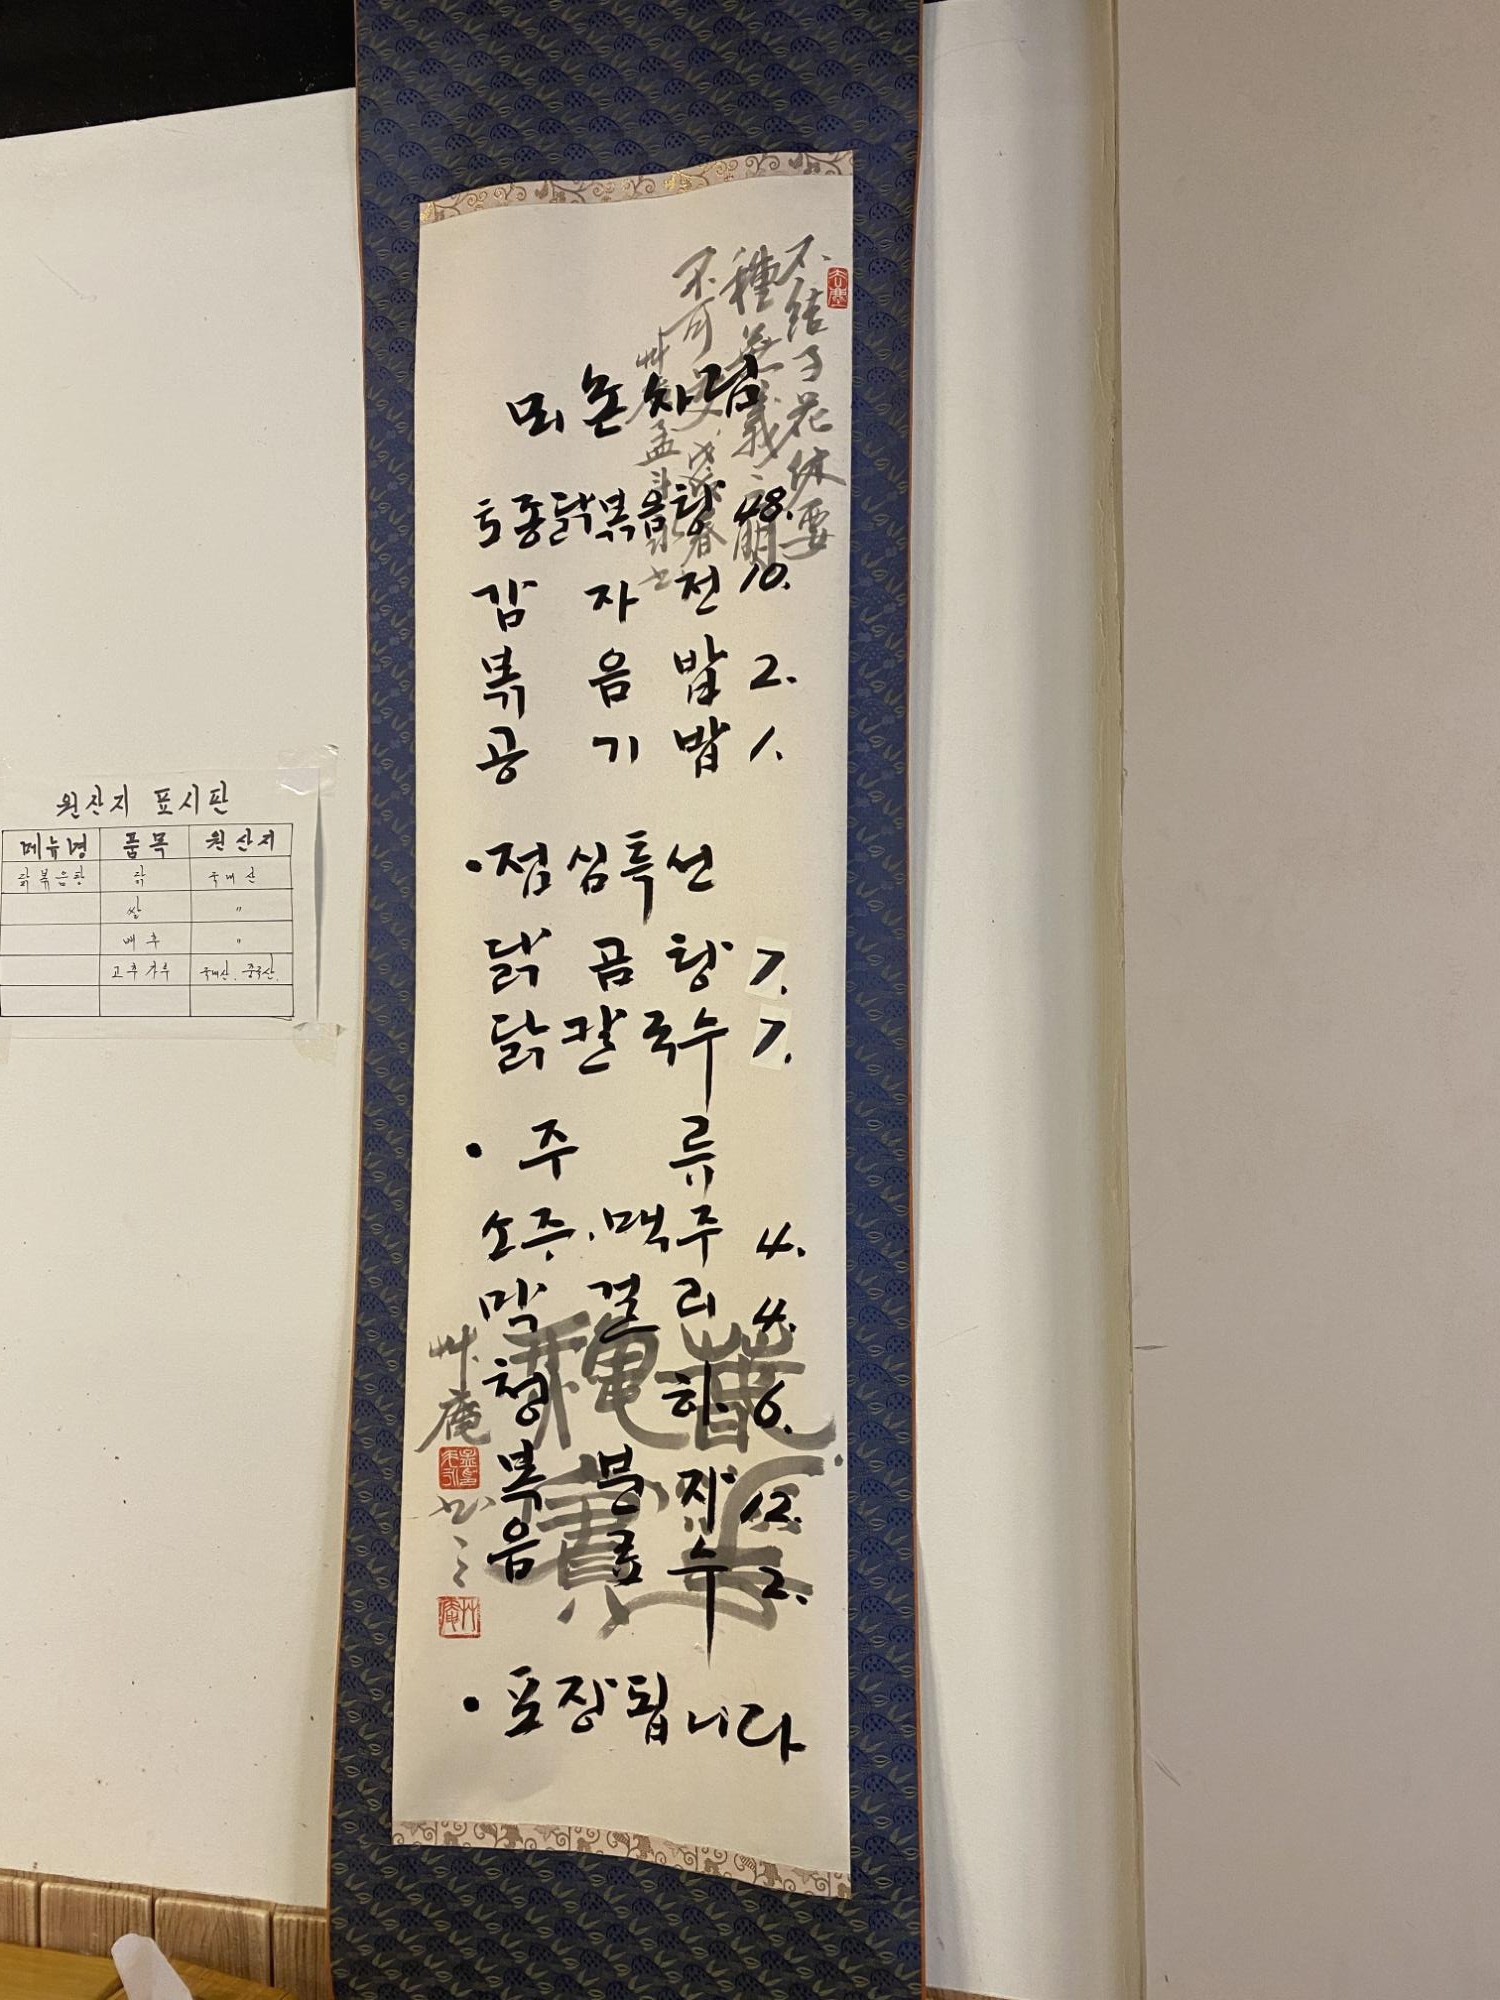 뫼촌차림
토종닭볶음탕 48.
감자전 10.
볶음밥 2.
공기밥 1.
•점심특선
닭곰탕 7.
닭칼국수 7.
• 주류
소주.맥주 4.
막걸리 4.
청하 6.
복분자 12.
음료수 2.
• 포장됩니다
不結子花休要
種無義之朋
不可交 戊戌春
艸庵
원산지 표시판
메뉴명 품목 원산지
닭볶음탕 닭 국내산
쌀 "
배추 "
고추가루 국내산. 중국산.